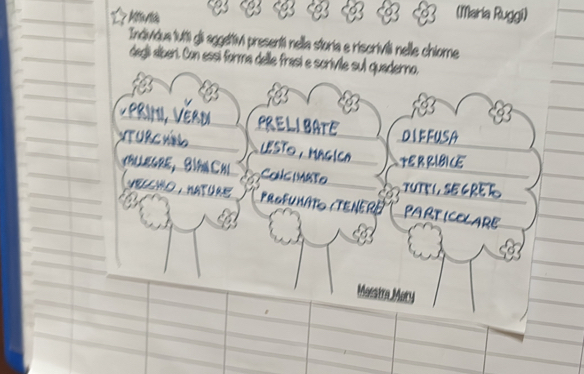 (Maria Ruggi)
Attività
Individua tutti gli aggettivi presenti nella storia e riscrivili nelle chiome
degli alberi. Con essi forma delle frasi e scrivile sul quaderno.
PRIMI, VERDI
TURCHINO
ALLEGRE, BIANCHI
VECCHIO, MATURE
PRELIBATE
LESTO, MAGICA
CONCIMATO
PROFUMATO, TENERE
DIFFUSA
TERRIBILE
TUTTI, SEGRETO
PARTICOLARE
Maestra Mary